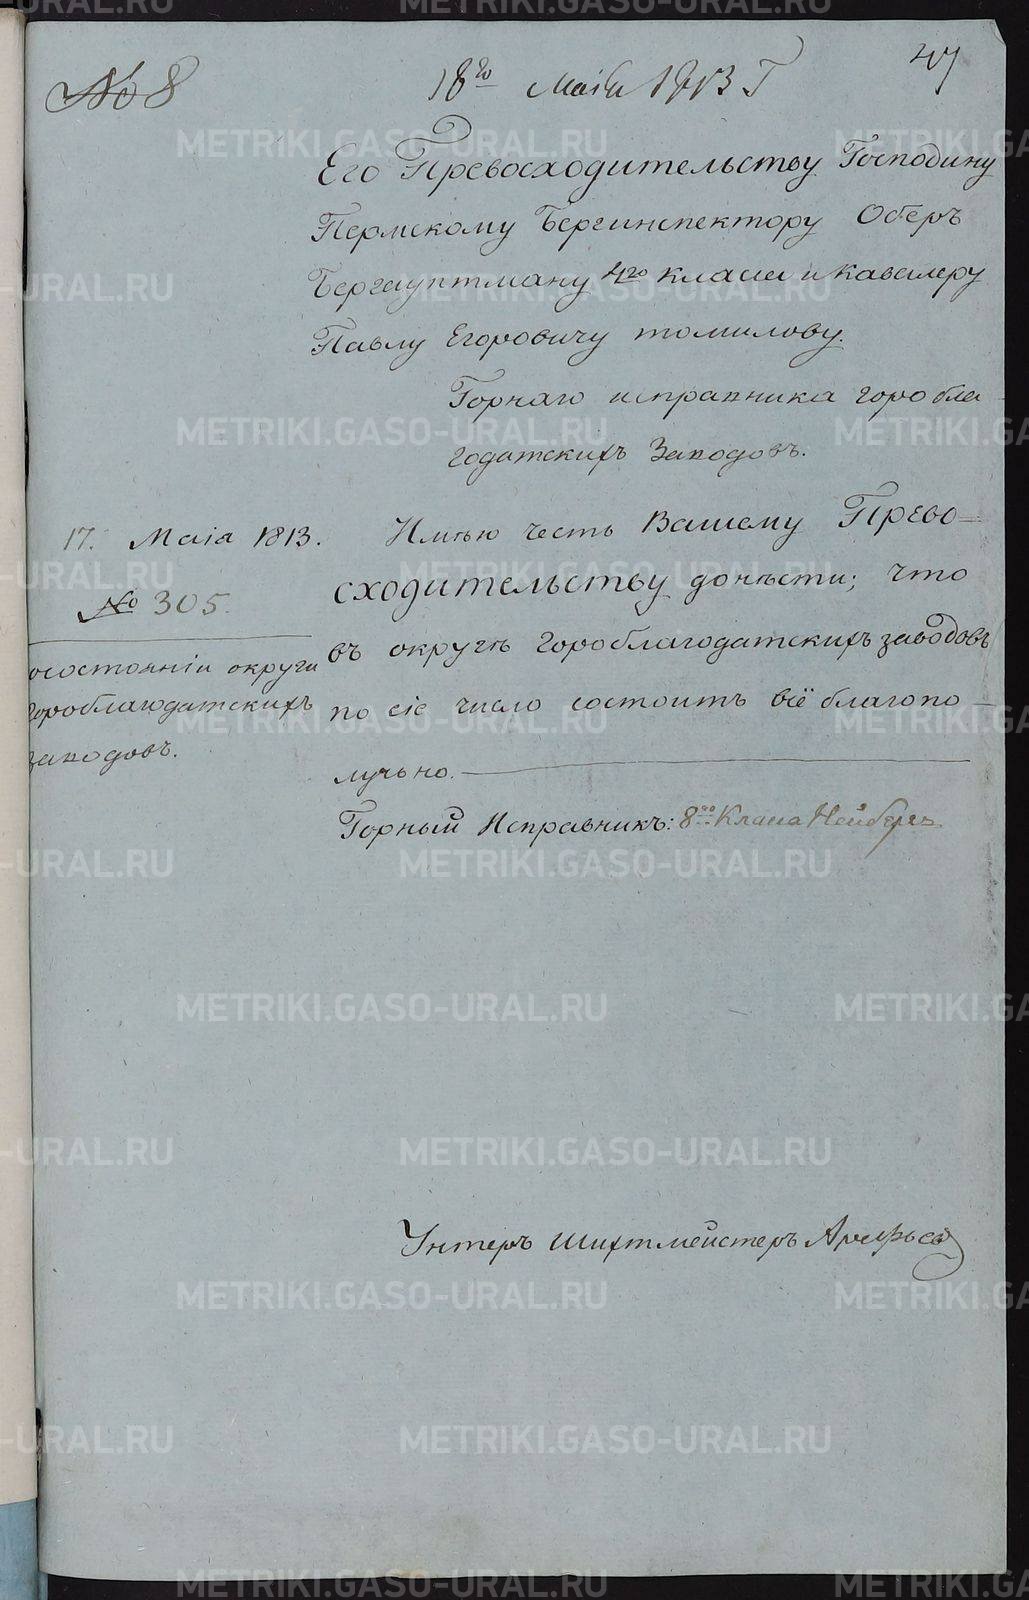 № 8
18го Маія 1813 Г
47
Его Превосходительству Господину
Пермскому Бергинспектору Оберъ
Бергауптману 4го класа и кавалеру
Павлу Егоровичу томилову.
Горнаго исправника горобла
годатскихъ Заводовъ.
17. Маія 1813.
№ 305.
о состояніи округи
гороблагодатскихъ
заводовъ.
Имѣю честь Вашему Прево=
сходительству донѣсти; что
въ округѣ Гороблагодатскихъ заводовъ
по сіе число состоитъ всё благопо-
лучьно.
Горный Исправникъ: 8го Класа Нейбергъ
Унтеръ шихтмейстеръ
METRIKI.GASO-URAL.RU